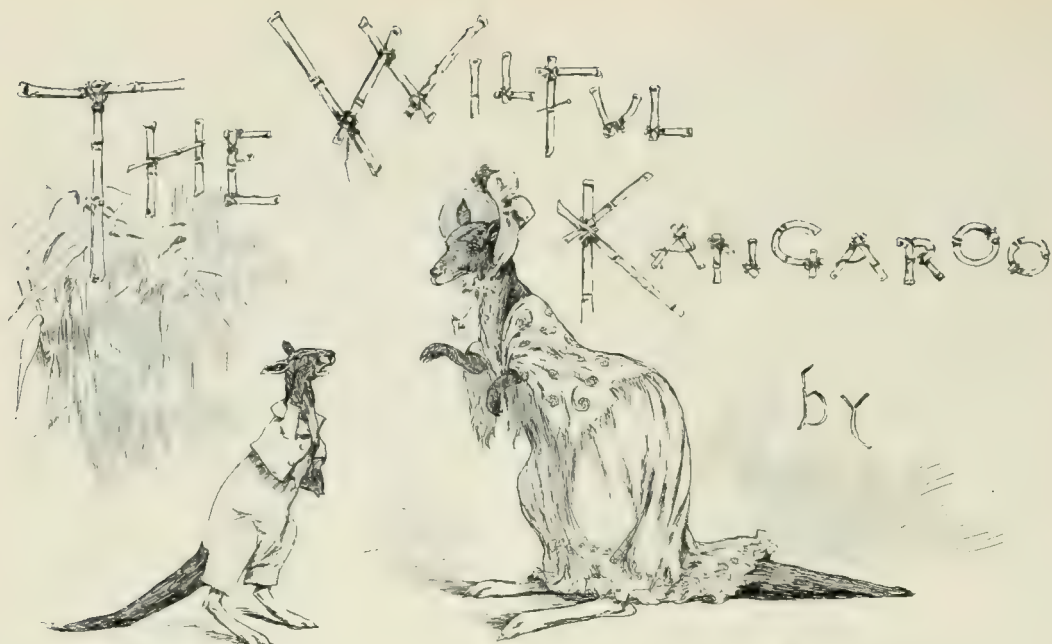 THE WILFUL
KANGAROO
by